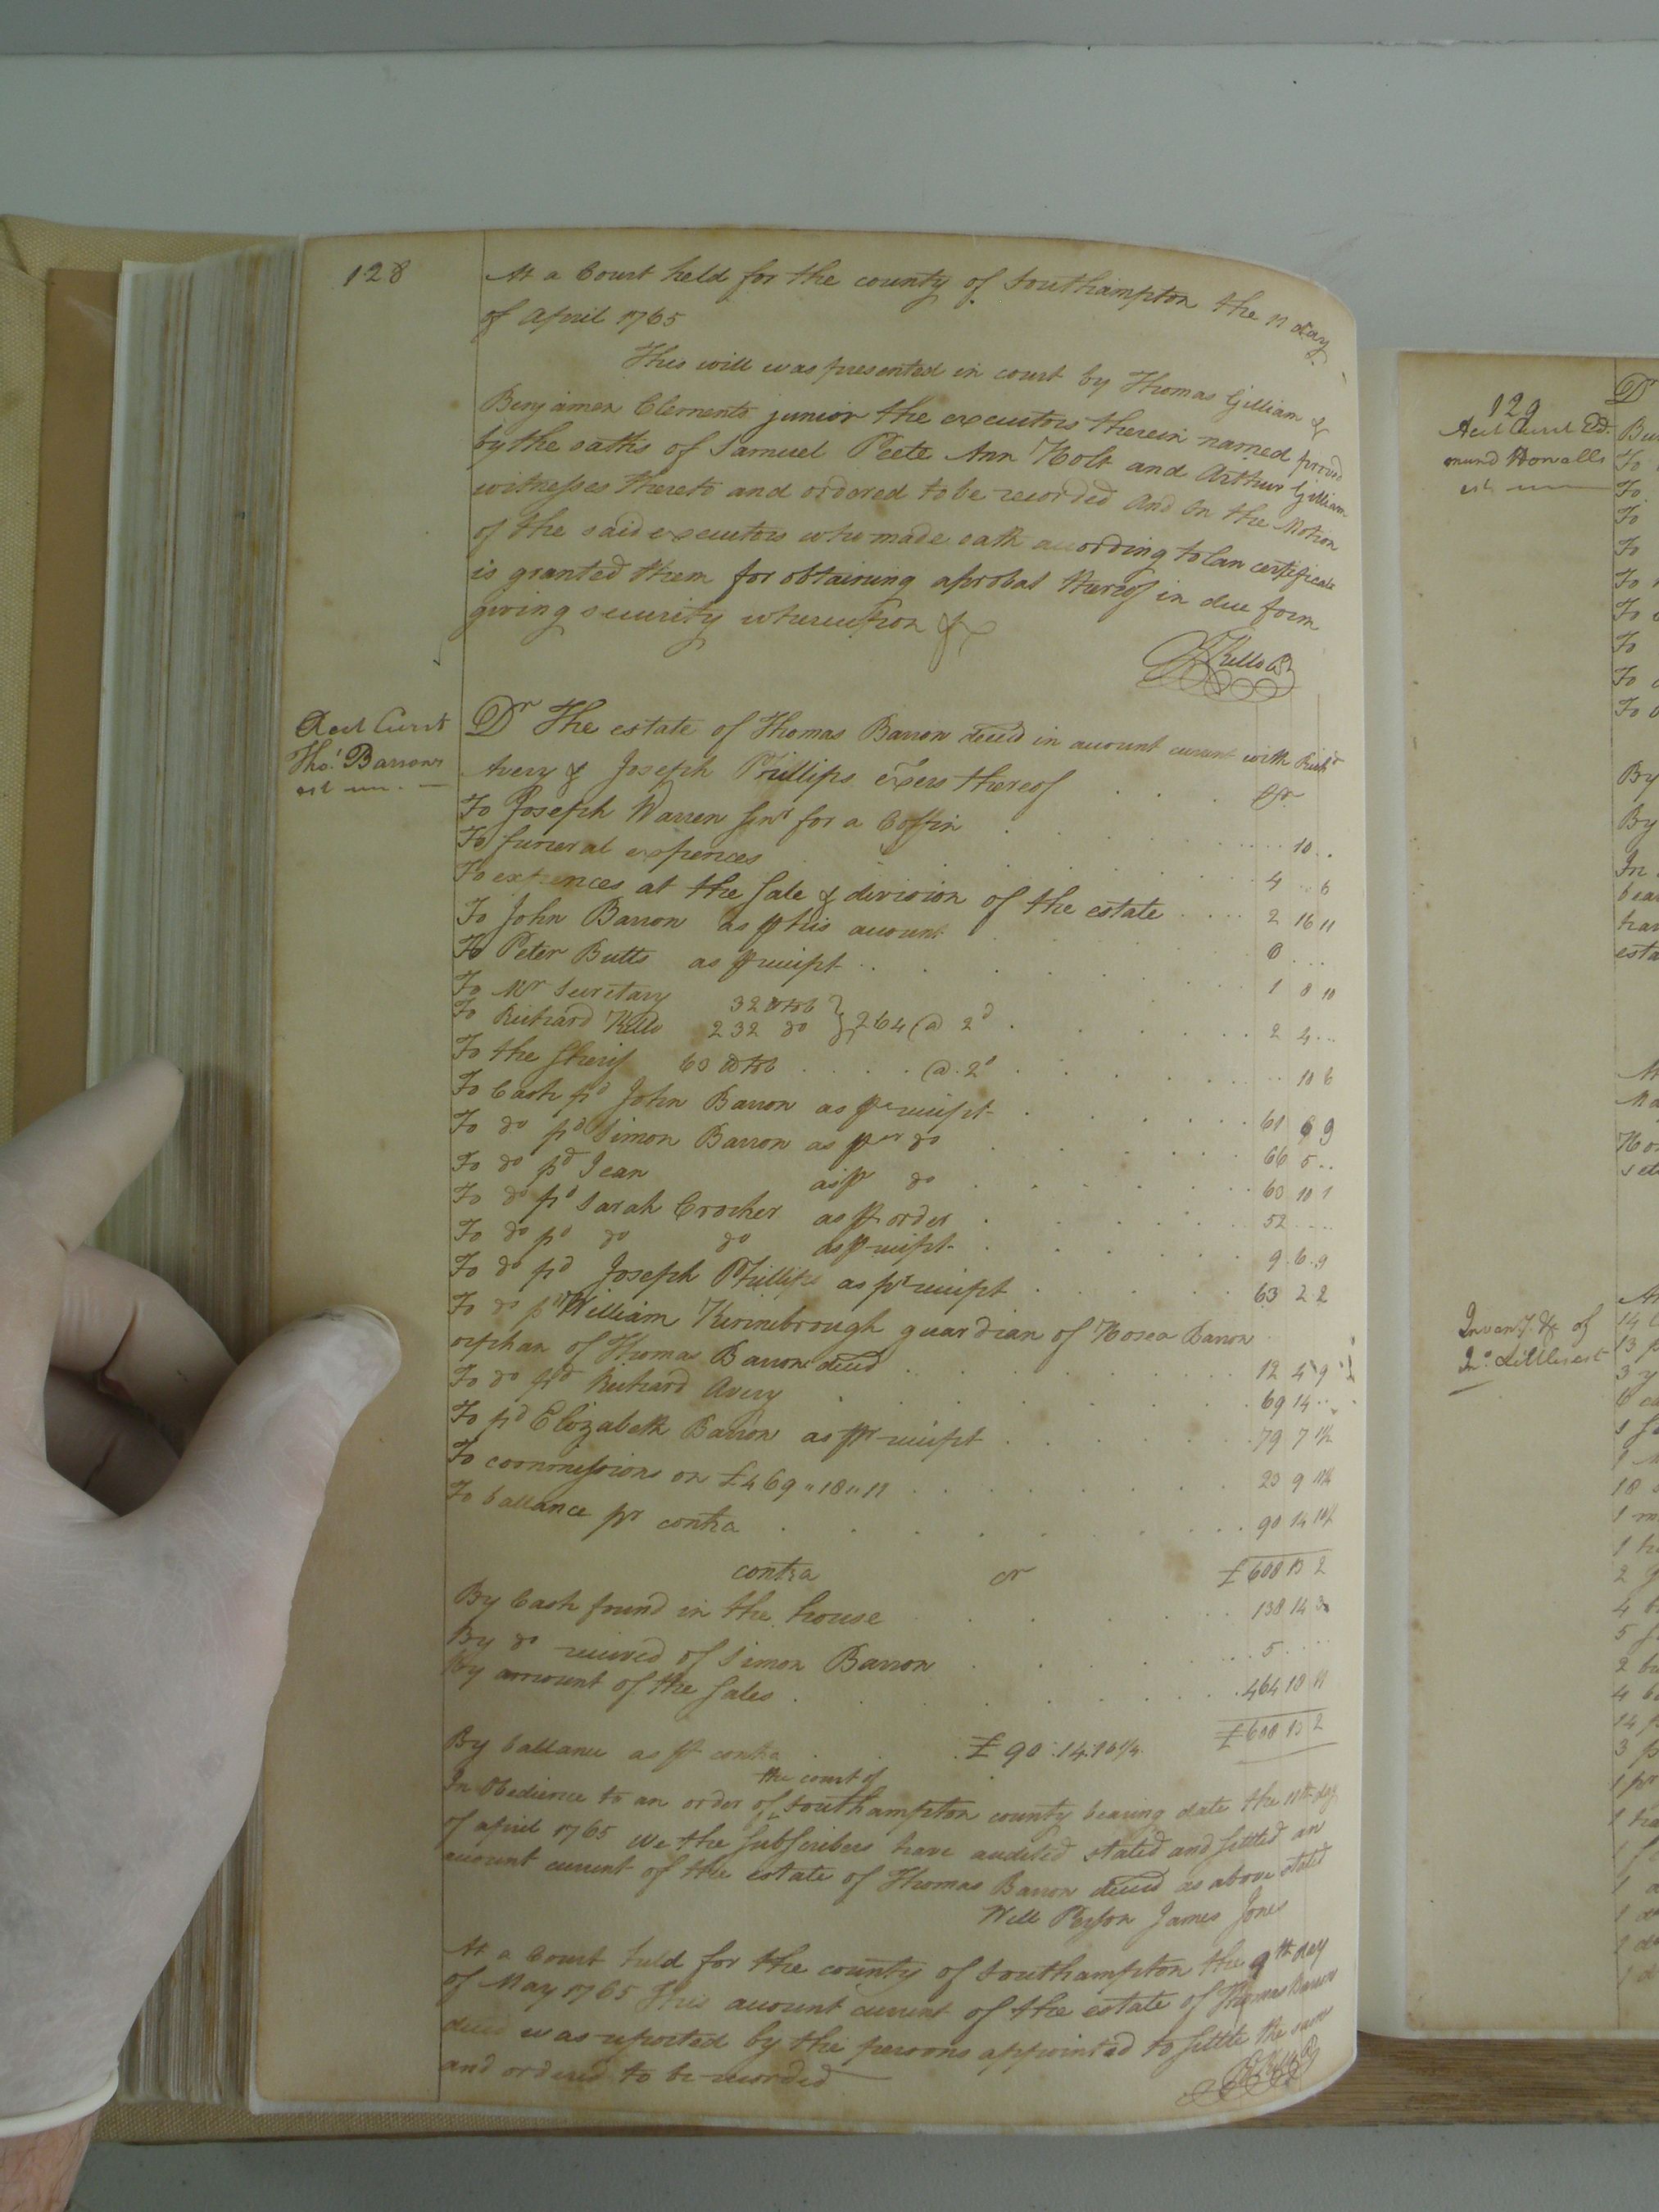 128
At a Court held for the county of Southampton the 11 day
of April 1765
This will was presented in court by Thomas Gilliam &
Benjamen Clements junior the executors therein named proved
by the oaths of Samuel Peete Ann Holt and Arthur Gilliam
witnesses thereto and ordered to be recorded And On the Motion
of the said executors who made oath according to law certificate
is granted them for obtaining a probat thereof in due form
giving security whereupon &c
R Kello Cl
Acct Currt
Thos. Barrons
est
Dr The estate of Thomas Barron decd in account current with Richd
Avery & Joseph Phillips exers thereof
To Joseph Warren Senr for a Coffin 10
To funeral expences 4 6
To expences at the Sale & division of the estate 2 16 11
To John Barron as pr his account
To Peter Butts as pr receipt 1 8 10
To Mr Secretary 32 wtob
To Richard Kello 232 do } 264 @ 2d 2 4
To the Sherif 63 wtob @ 2d 10 6
To Cash pd John Barron as pr receipt 61 6 9
To do pd Simon Barron as pr do 66 5
To do pd Jean as pr do 63 10 1
To do pd Sarah Crocker as pr order 52
To do pd do do as pr receipt 9 6 9
To do pd Joseph Phillips as pr receipt 63 2 2
To do pd William Kinnebrough guardian of Hosea Barron
orphan of Thomas Barron decd 12 4 9
To do pd Richard Avery 69 14
To pd Elizabeth Barron as pr receipt 79 7 1½
To commissions on £469 " 18 " 11 23 9 11¾
To ballance pr contra 90 14 10¼
£608 13 2
contra cr
By Cash found in the house 138 14 3
By do received of Simon Barron 5
By amount of the Sales 464 18 11
£608 13 2
By ballance as pr contra £90.14.10¼
In Obedience to an order of the court of Southampton county bearing date the 11th day
of april 1765 We the Subscribers have audited stated and settled an
account current of the estate of Thomas Barron decd as above stated
Will Person James Jones
At a Court held for the county of Southampton the 9th day
of May 1765 This account current of the estate of Thomas Barron
decd was reported by the persons appointed to Settle the same
and ordered to be recorded
129
Acct Currt Ed.
mund Howells
est
Dr
Inventy. &c of
Jno. Littles est